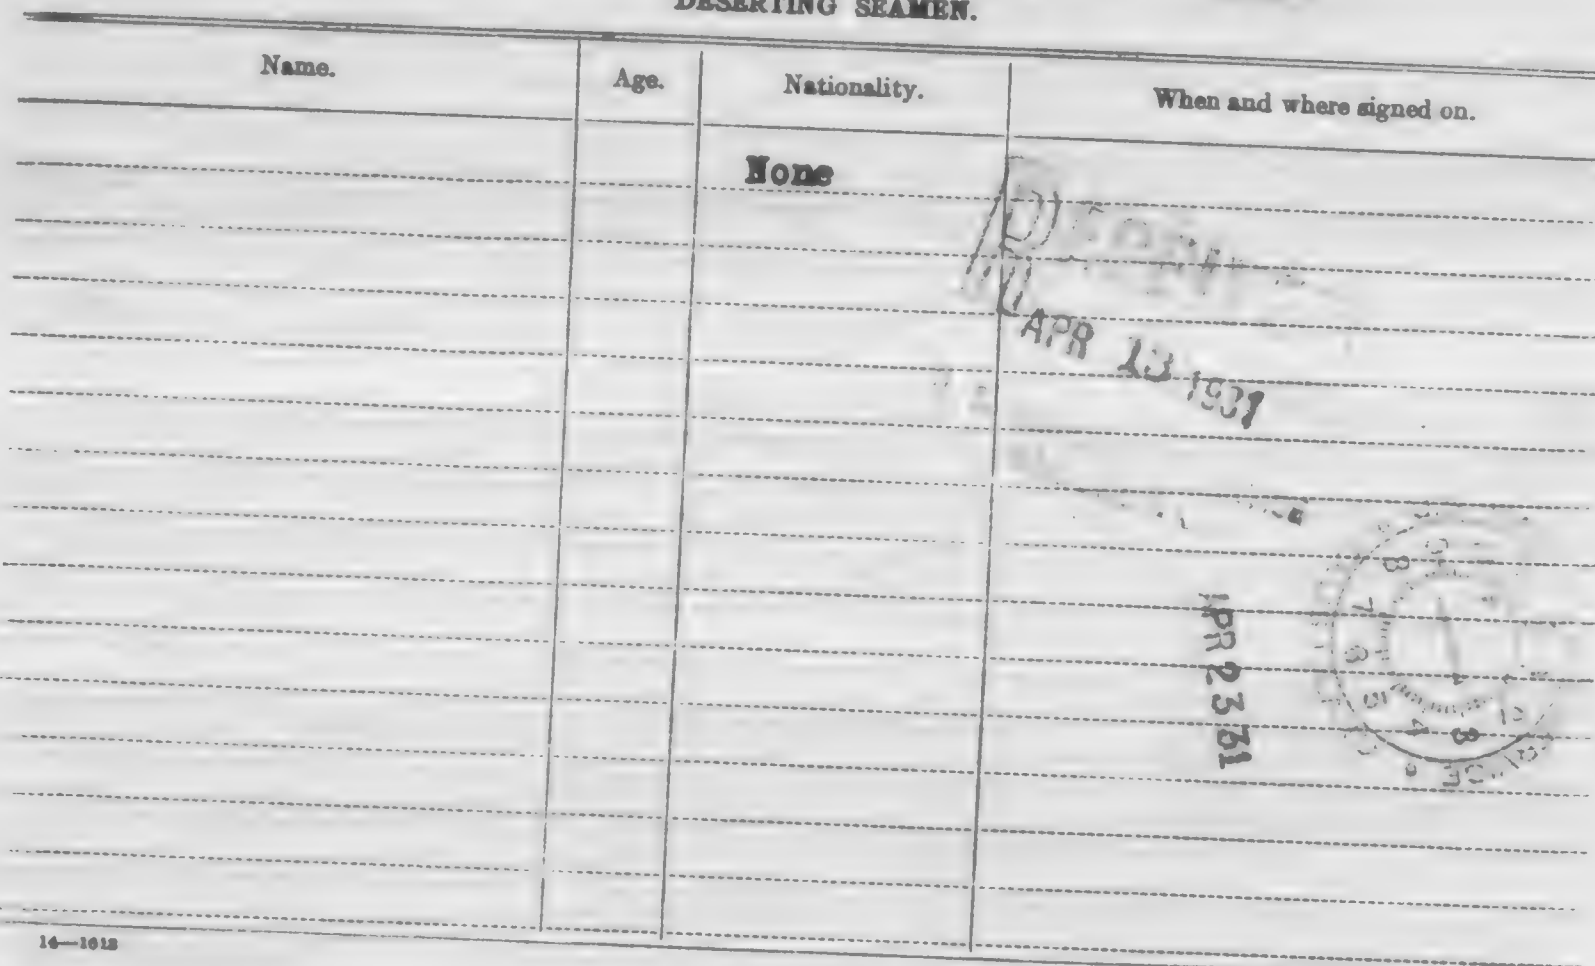 DESERTING SEAMEN.
Name. Age. Nationality. When and where signed on.
None
APR 13 1931
APR 23 31
8 7 6 5 4 3
14—1613